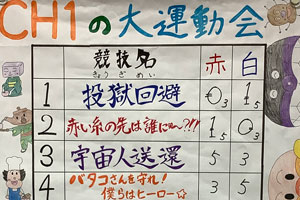 CH1の大運動会
競技名 赤 白
きょうぎめい
1 投獄回避 0 3 1 5
2 赤い糸の先は誰にゅ〜?!! 1 5 0 3
3 宇宙人送還 5 3
4 バタコさんを守れ! 3 5
僕らはヒーロー☆